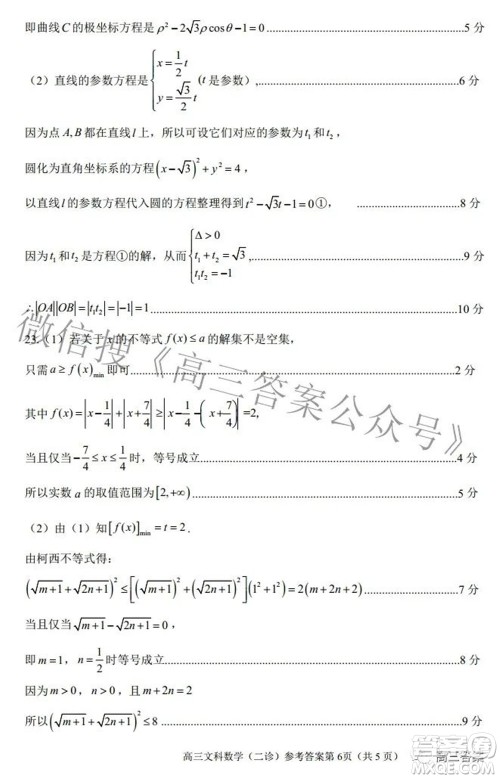 即曲线 C 的极坐标方程是 ρ² − 2√3ρcosθ − 1 = 0 ……5 分
（2）直线的参数方程是 { x = 1/2 t, y = √3/2 t （t 是参数），……6 分
因为点 A, B 都在直线 l 上，所以可设它们对应的参数为 t₁ 和 t₂，
圆化为直角坐标系的方程 (x − √3)² + y² = 4，
以直线 l 的参数方程代入圆的方程整理得到 t² − √3t − 1 = 0①， ……8 分
因为 t₁ 和 t₂ 是方程①的解，从而 { Δ > 0, t₁ + t₂ = √3, t₁t₂ = −1 ，……9 分
∴|OA||OB| = |t₁t₂| = |−1| = 1 ……10 分
23.（1）若关于 x 的不等式 f(x) ≤ a 的解集不是空集，
只需 a ≥ f(x)min 即可……2 分
其中 f(x) = |x − 1/4| + |x + 7/4| ≥ |x − 1/4 − (x + 7/4)| = 2,
当且仅当 −7/4 ≤ x ≤ 1/4 时，等号成立……4 分
所以实数 a 的取值范围为 [2, +∞) ……5 分
（2）由（1）知 [f(x)]min = t = 2 .
由柯西不等式得：
(√(m+1) + √(2n+1))² ≤ [(√(m+1))² + (√(2n+1))²](1² + 1²) = 2(m + 2n + 2) ……7 分
当且仅当 √(m+1) − √(2n+1) = 0，
即 m = 1，n = 1/2 时等号成立……8 分
因为 m > 0，n > 0，且 m + 2n = 2
所以 (√(m+1) + √(2n+1))² ≤ 8 ……9 分
高三文科数学（二诊）参考答案第 6页（共 5 页）
微信搜《高三答案公众号》
高三答案